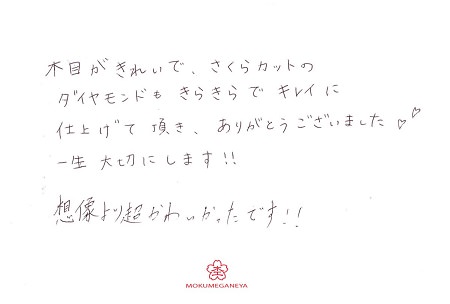 木目がきれいで、さくらカットの
ダイヤモンドも きらきらで キレイに
仕上げて 頂き、ありがとうございました♡♡
一生 大切にします!!
想像より超かわいかったです!!
MOKUMEGANEYA